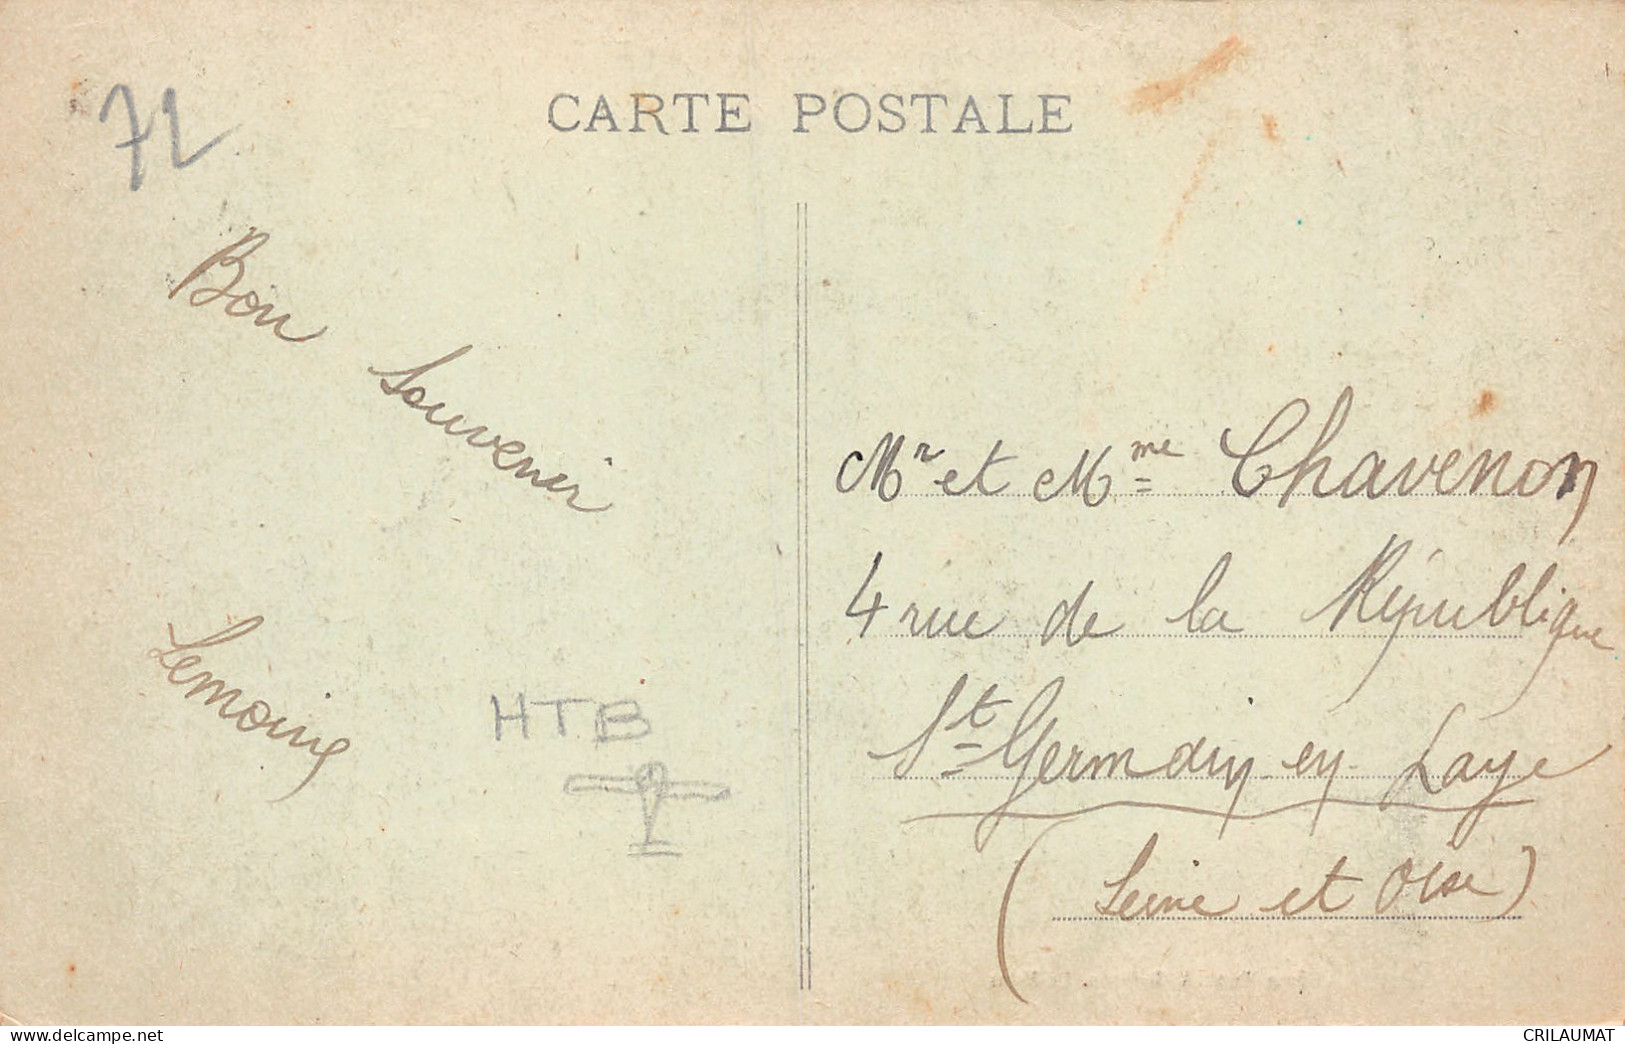 CARTE POSTALE
72
Bon
Souvenir
Lemoine
HTB
Mr et Mme Chavenon
4 rue de la République
St Germain en Laye
(Seine et Oise)
www.delcampe.net
CRILAUMAT